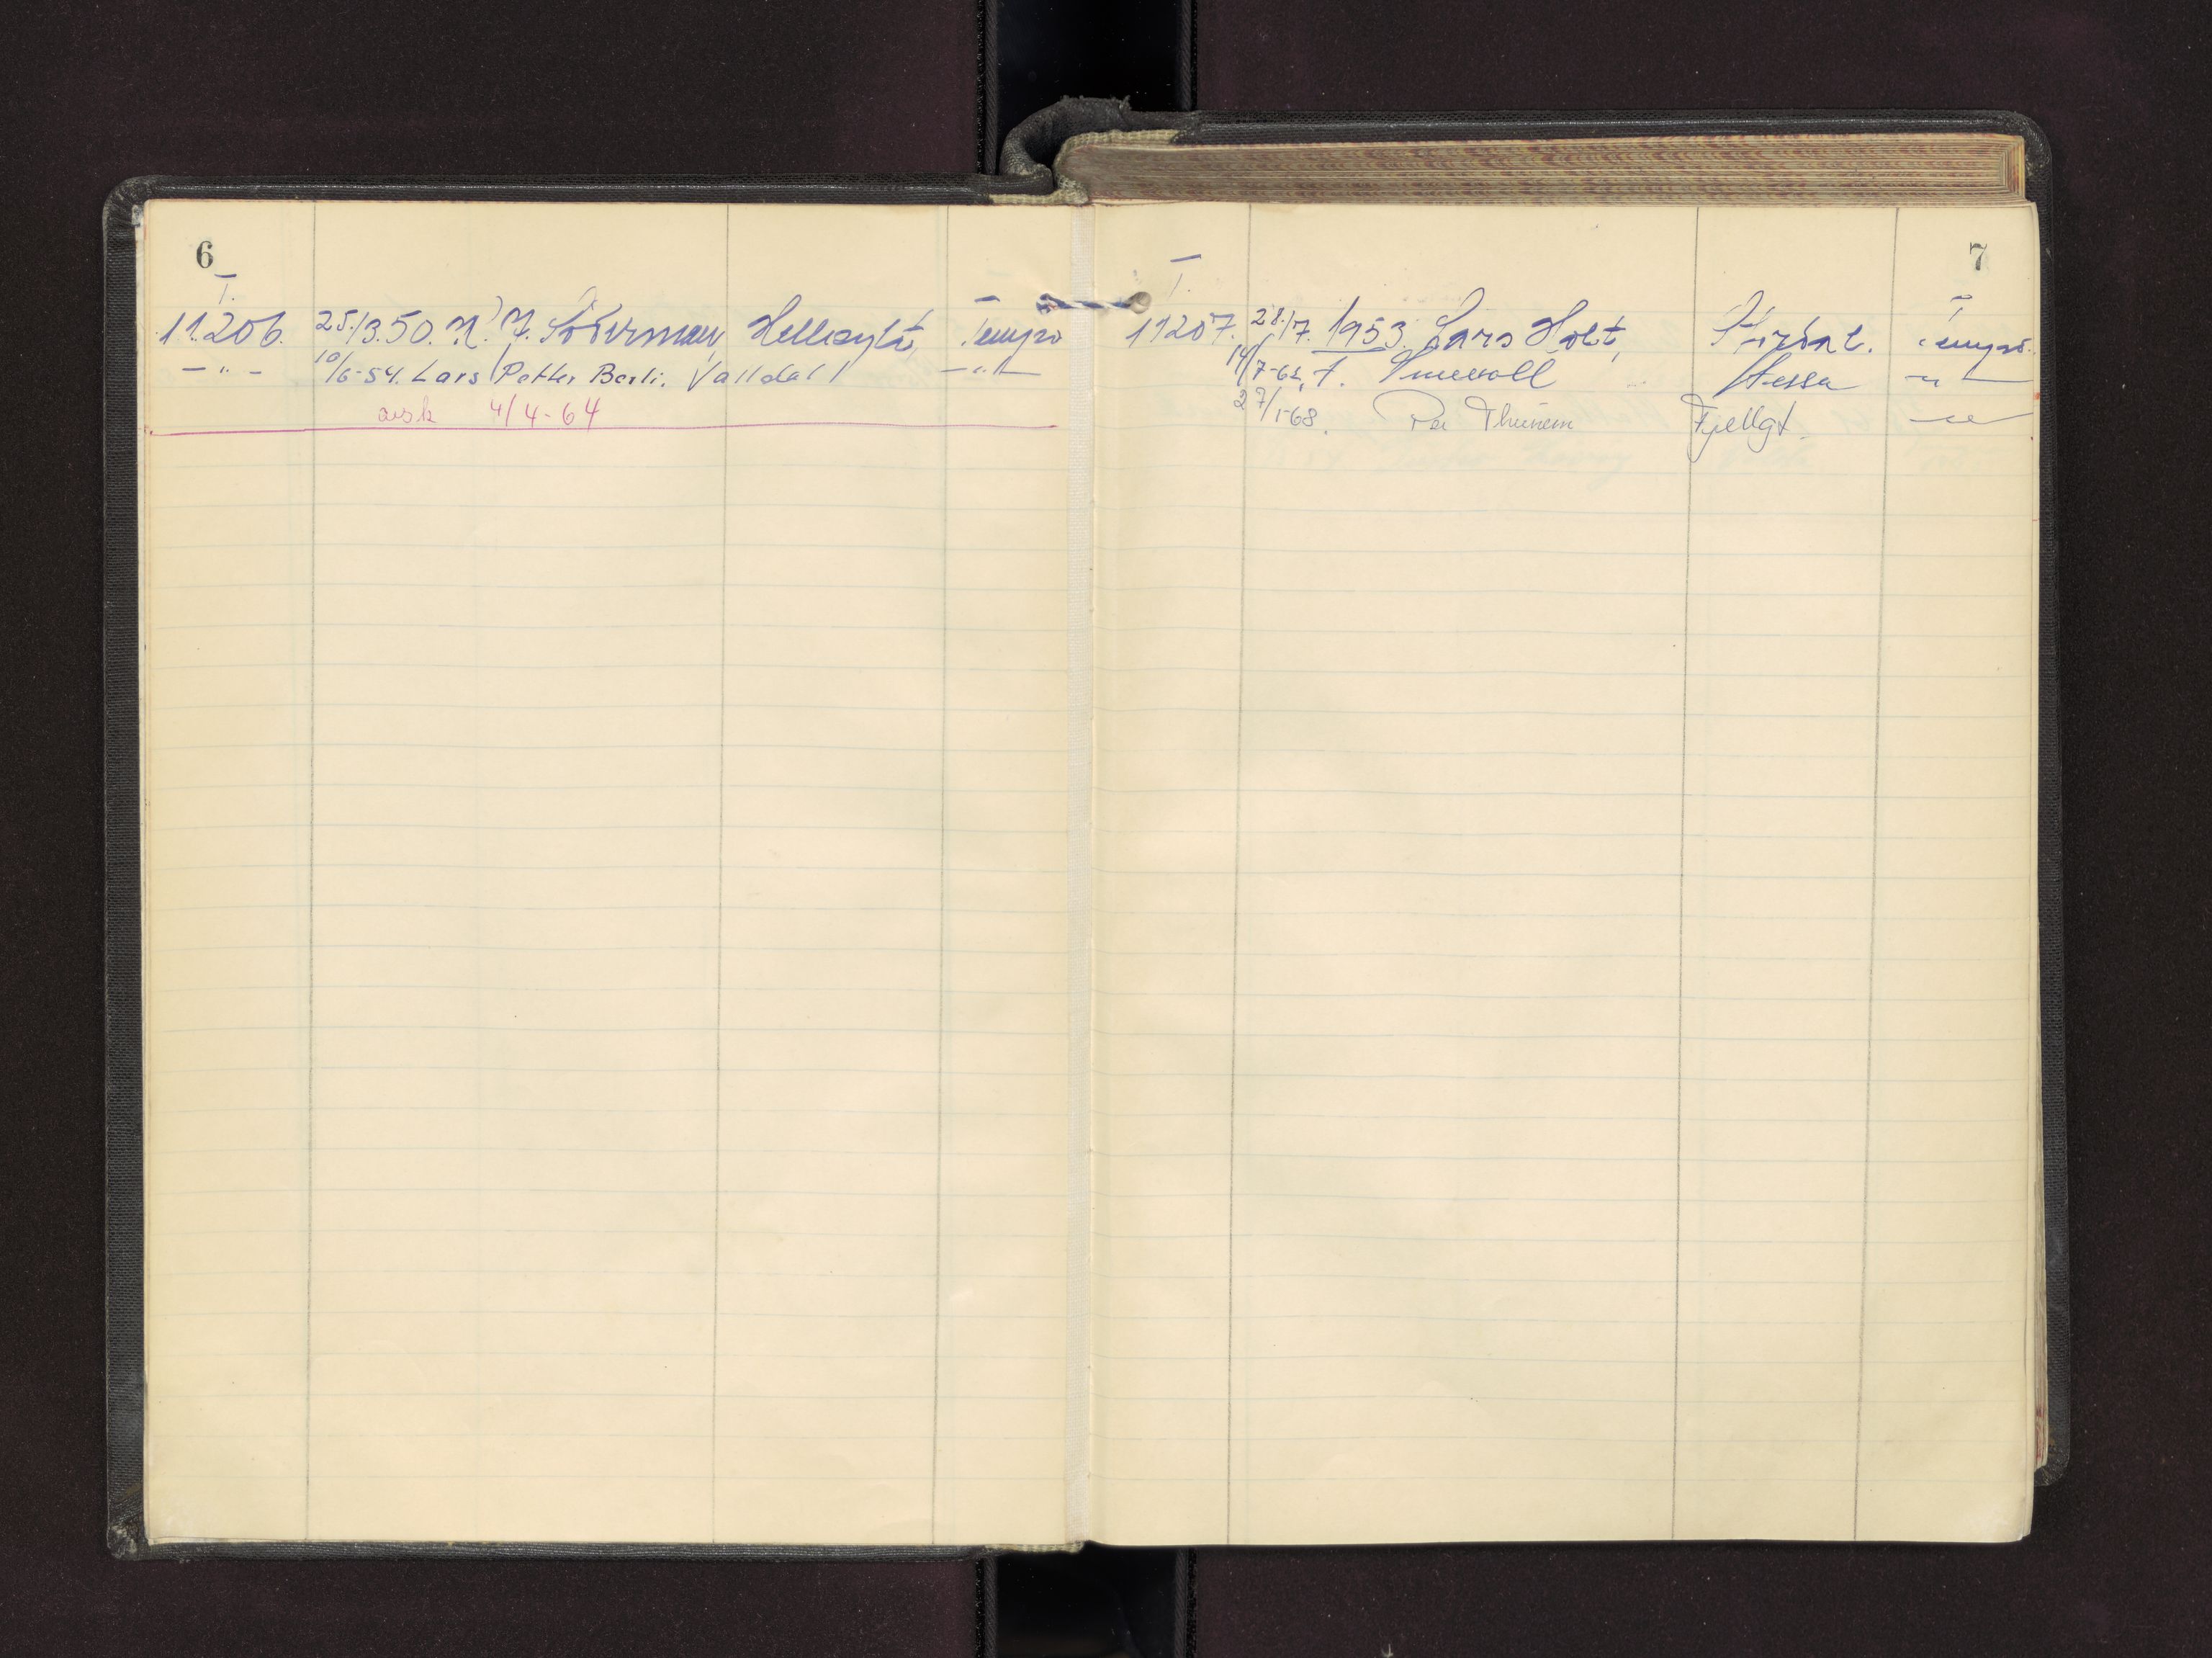 6
T.
11206. 25/3.50. N. J. Söderman, Hellesylt, Tempo
- " - 10/6-54. Lars Petter Berli. Valldal - " -
avsk 4/4-64
7
T.
11207. 28/7. 1953. Lars Holt, Tempo.
14/7-62, F. Stessa - " -
27/1-68. Per Fjellgt. - " -